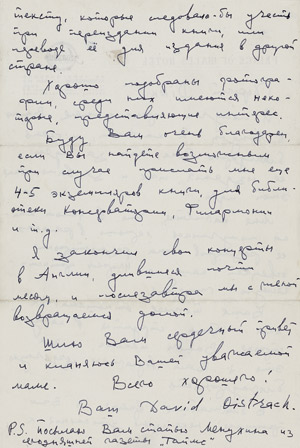 тексту, которые следовало-бы учесть
при переиздании книги, или
переводе её для издания в другой
стране.
Хорошо подобраны фотогра-
фии, среди них имеются неко-
торые, представляющие интерес.
Буду Вам очень благодарен,
если Вы найдёте возможным
при случае прислать мне ещё
4-5 экземпляров книги, для библи-
отеки Консерватории, Филармонии
и т.д.
Я закончил свои концерты
в Англии, длившиеся почти
месяц, и послезавтра мы с женой
возвращаемся домой.
Шлю Вам сердечный привет
и кланяюсь Вашей уважаемой
маме. Всего хорошего!
Ваш David Oistrach.
P.S. посылаю Вам статью Менухина из
сегодняшней газеты „Таймс"